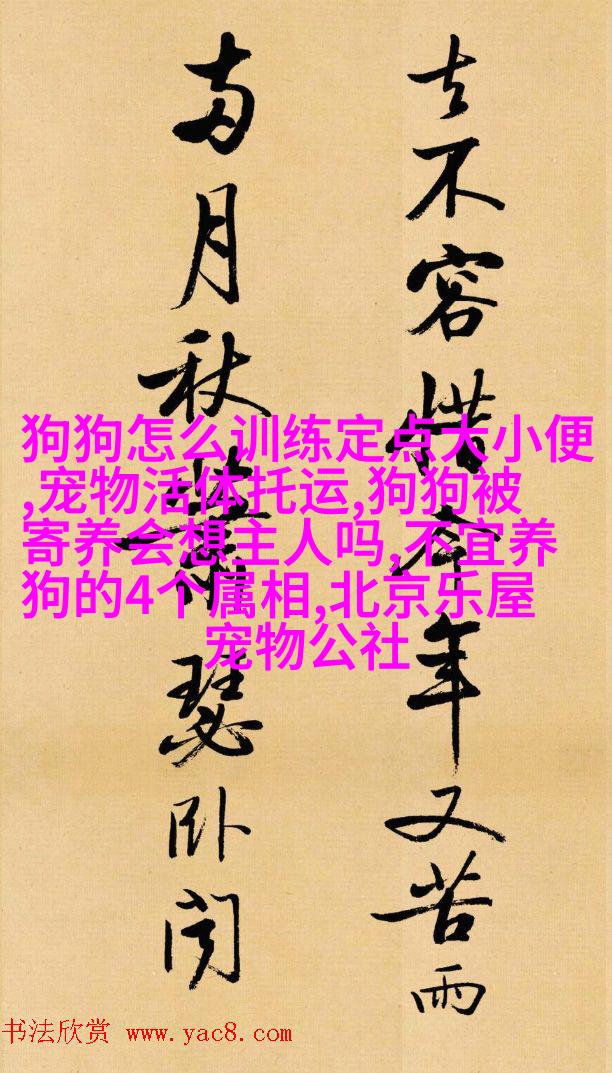 去不容惜今年又苦雨
兩月秋蕭瑟卧闻
狗狗怎么训练定点大小便
,宠物活体托运,狗狗被
寄养会想主人吗,不宜养
狗的4个属相,北京乐屋
宠物公社
书法欣赏 www.yac8.com